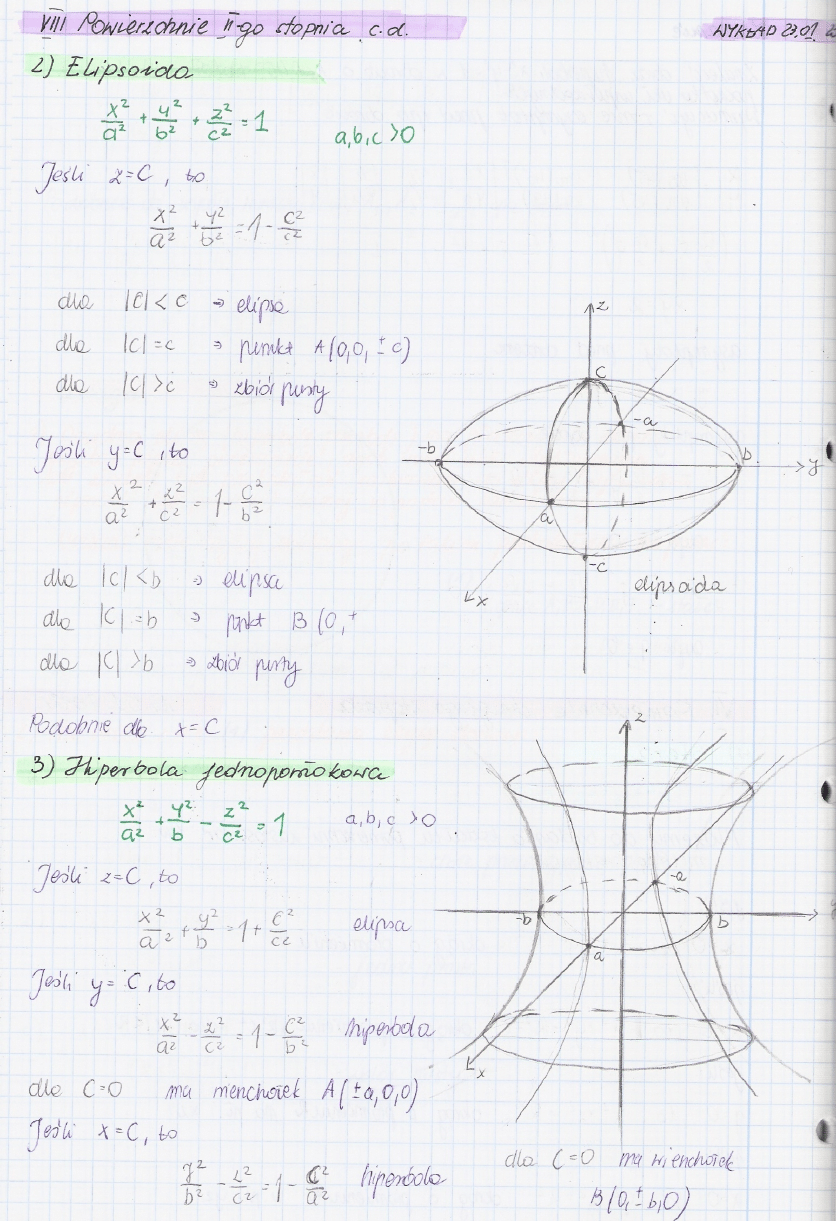 VIII Powierzchnie II-go stopnia c.d.
WYKŁAD 23.01
2) Elipsoida
x²/a² + y²/b² + z²/c² = 1    a,b,c >0
Jeśli z=C, to
x²/a² + y²/b² = 1 - C²/c²
dla |C| < c ⇒ elipsa
dla |C| = c ⇒ punkt A(0,0, ± c)
dla |C| > c ⇒ zbiór pusty
Jeśli y=C, to
x²/a² + z²/c² = 1 - C²/b²
dla |C| < b ⇒ elipsa
dla |C| = b ⇒ punkt B (0, ±
dla |C| > b ⇒ zbiór pusty
Podobnie dla x=C
z
c
-a
-b
b
y
a
-c
x
elipsoida
3) Hiperbola jednopowłokowa
x²/a² + y²/b - z²/c² = 1    a,b,c >0
Jeśli z=C, to
x²/a² + y²/b = 1 + C²/c²    elipsa
Jeśli y=C, to
x²/a² - z²/c² = 1 - C²/b²    hiperbola
dla C=0 ma wierzchołek A(±a,0,0)
Jeśli x=C, to
y²/b² - z²/c² = 1 - C²/a²    hiperbola
z
-a
-b
b
a
x
dla C=0 ma wierzchołek
B(0,±b,0)